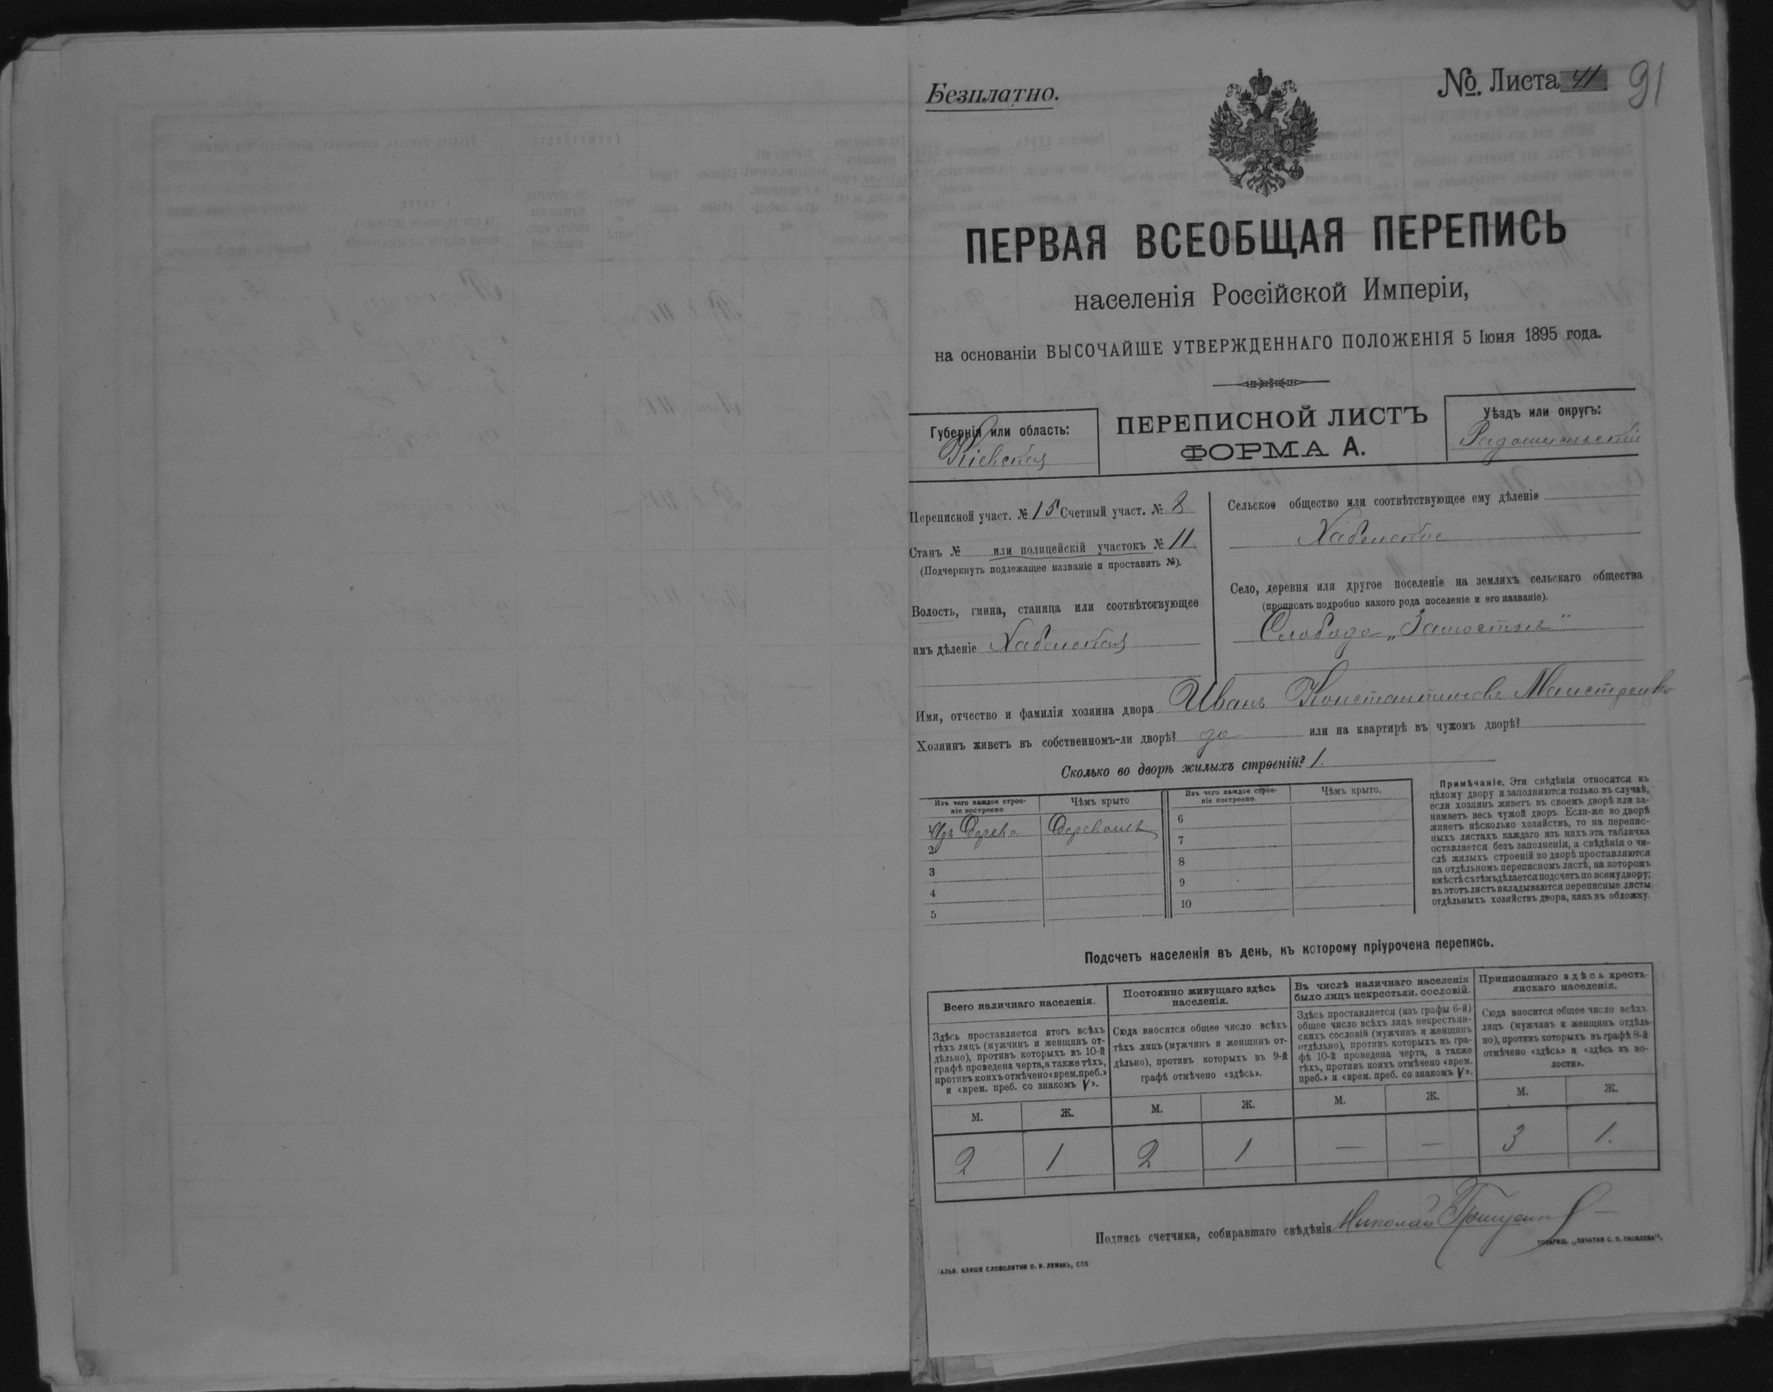 Безплатно.
№. Листа 41 91
ПЕРВАЯ ВСЕОБЩАЯ ПЕРЕПИСЬ
населенія Россійской Имперіи,
на основаніи ВЫСОЧАЙШЕ УТВЕРЖДЕННАГО ПОЛОЖЕНІЯ 5 Іюня 1895 года.
Губернія или область:
Кіевская
ПЕРЕПИСНОЙ ЛИСТЪ
ФОРМА А.
Уѣздъ или округъ:
Радомысльскій
Переписной участ. № 15 Счетный участ. № 8
Станъ № или полицейскій участокъ № 11
(Подчеркнуть подлежащее названіе и проставить №).
Волость, гмина, станица или соотвѣтствующее
имъ дѣленіе Хабенская
Сельское общество или соотвѣтствующее ему дѣленіе
Хабенское
Село, деревня или другое поселеніе на земляхъ сельскаго общества
(прописать подробно какого рода поселеніе и его названіе).
Слобода „Замостье“
Имя, отчество и фамилія хозяина двора Иванъ Константиновъ Маистренко
Хозяинъ живетъ въ собственномъ-ли дворѣ? да или на квартирѣ въ чужомъ дворѣ?
Сколько во дворѣ жилыхъ строеній? 1.
Изъ чего каждое строеніе построено
Чѣмъ крыто
Изъ чего каждое строеніе построено.
Чѣмъ крыто.
Изъ дерева Деревомъ
2
3
4
5
6
7
8
9
10
Примѣчаніе. Эти свѣдѣнія относятся къ
цѣлому двору и заполняются только въ случаѣ,
если хозяинъ живетъ въ своемъ дворѣ или за-
нимаетъ весь чужой дворъ. Если-же во дворѣ
живетъ нѣсколько хозяйствъ, то на перепис-
ныхъ листахъ каждаго изъ нихъ эта табличка
оставляется безъ заполненія, а свѣдѣнія о чи-
слѣ жилыхъ строеній во дворѣ проставляются
на отдѣльномъ переписномъ листѣ, на которомъ
вмѣстѣ съ тѣмъ дѣлается подсчетъ по всему двору;
въ этотъ листъ вкладываются переписные листы
отдѣльныхъ хозяйствъ двора, какъ въ обложку.
Подсчетъ населенія въ день, къ которому пріурочена перепись.
Всего наличнаго населенія.
Здѣсь проставляется итогъ всѣхъ
тѣхъ лицъ (мужчинъ и женщинъ от-
дѣльно), противъ которыхъ въ 10-й
графѣ проведена черта, а также тѣхъ,
противъ коихъ отмѣчено «врем. преб.»
и «врем. преб. со знакомъ V».
Постоянно живущаго здѣсь
населенія.
Сюда вносится общее число всѣхъ
тѣхъ лицъ (мужчинъ и женщинъ от-
дѣльно), противъ которыхъ въ 9-й
графѣ отмѣчено «здѣсь».
Въ числѣ наличнаго населенія
было лицъ некрестьян. сословій.
Здѣсь проставляется (изъ графы 6-й)
общее число всѣхъ лицъ некрестьян-
скихъ сословій (мужчинъ и женщинъ
отдѣльно), противъ которыхъ въ гра-
фѣ 10-й проведена черта, а также
тѣхъ, противъ коихъ отмѣчено «врем.
преб.» и «врем. преб. со знакомъ V».
Приписаннаго здѣсь кресть-
янскаго населенія.
Сюда вносится общее число всѣхъ
лицъ (мужчинъ и женщинъ отдѣль-
но), противъ которыхъ въ графѣ 8-й
отмѣчено «здѣсь» и «здѣсь въ во-
лости».
М. Ж. М. Ж. М. Ж. М. Ж.
2 1 2 1 — — 3 1.
Подпись счетчика, собиравшаго свѣдѣнія Николай
ТОВАРИЩ. „ПЕЧАТНЯ С. П. ЯКОВЛЕВА“.
ГАЛЬВ. КЛИШЕ СЛОВОЛИТНИ О. И. ЛЕМАНЪ, СПБ